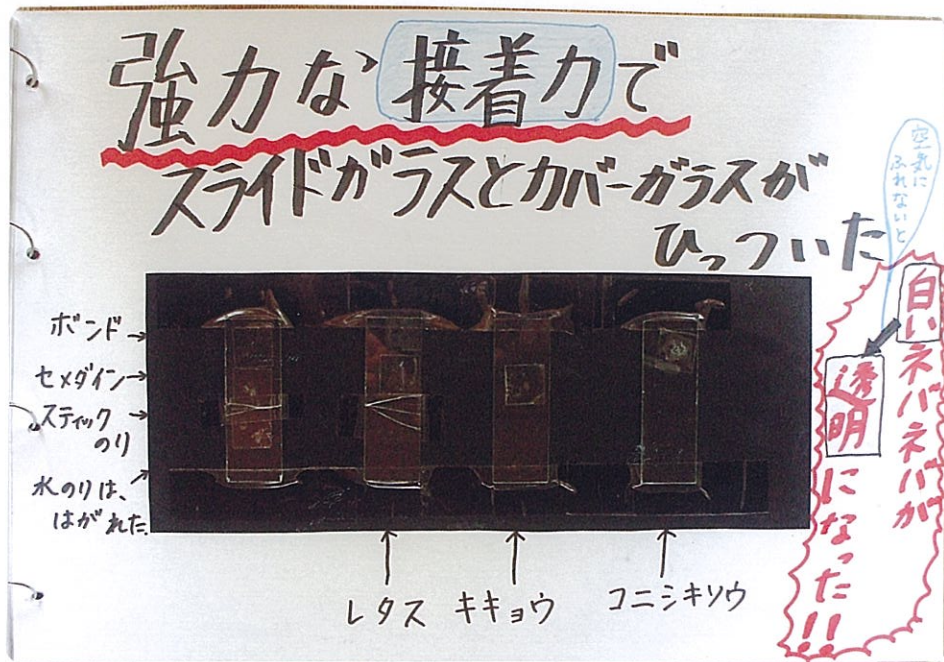 強力な接着力で
スライドガラスとカバーガラスが
ひっついた
空気に
ふれないと
白いネバネバが
透明になった!!
ボンド→
セメダイン→
スティック→
のり
水のりは、
はがれた
レタス
キキョウ
コニシキソウ